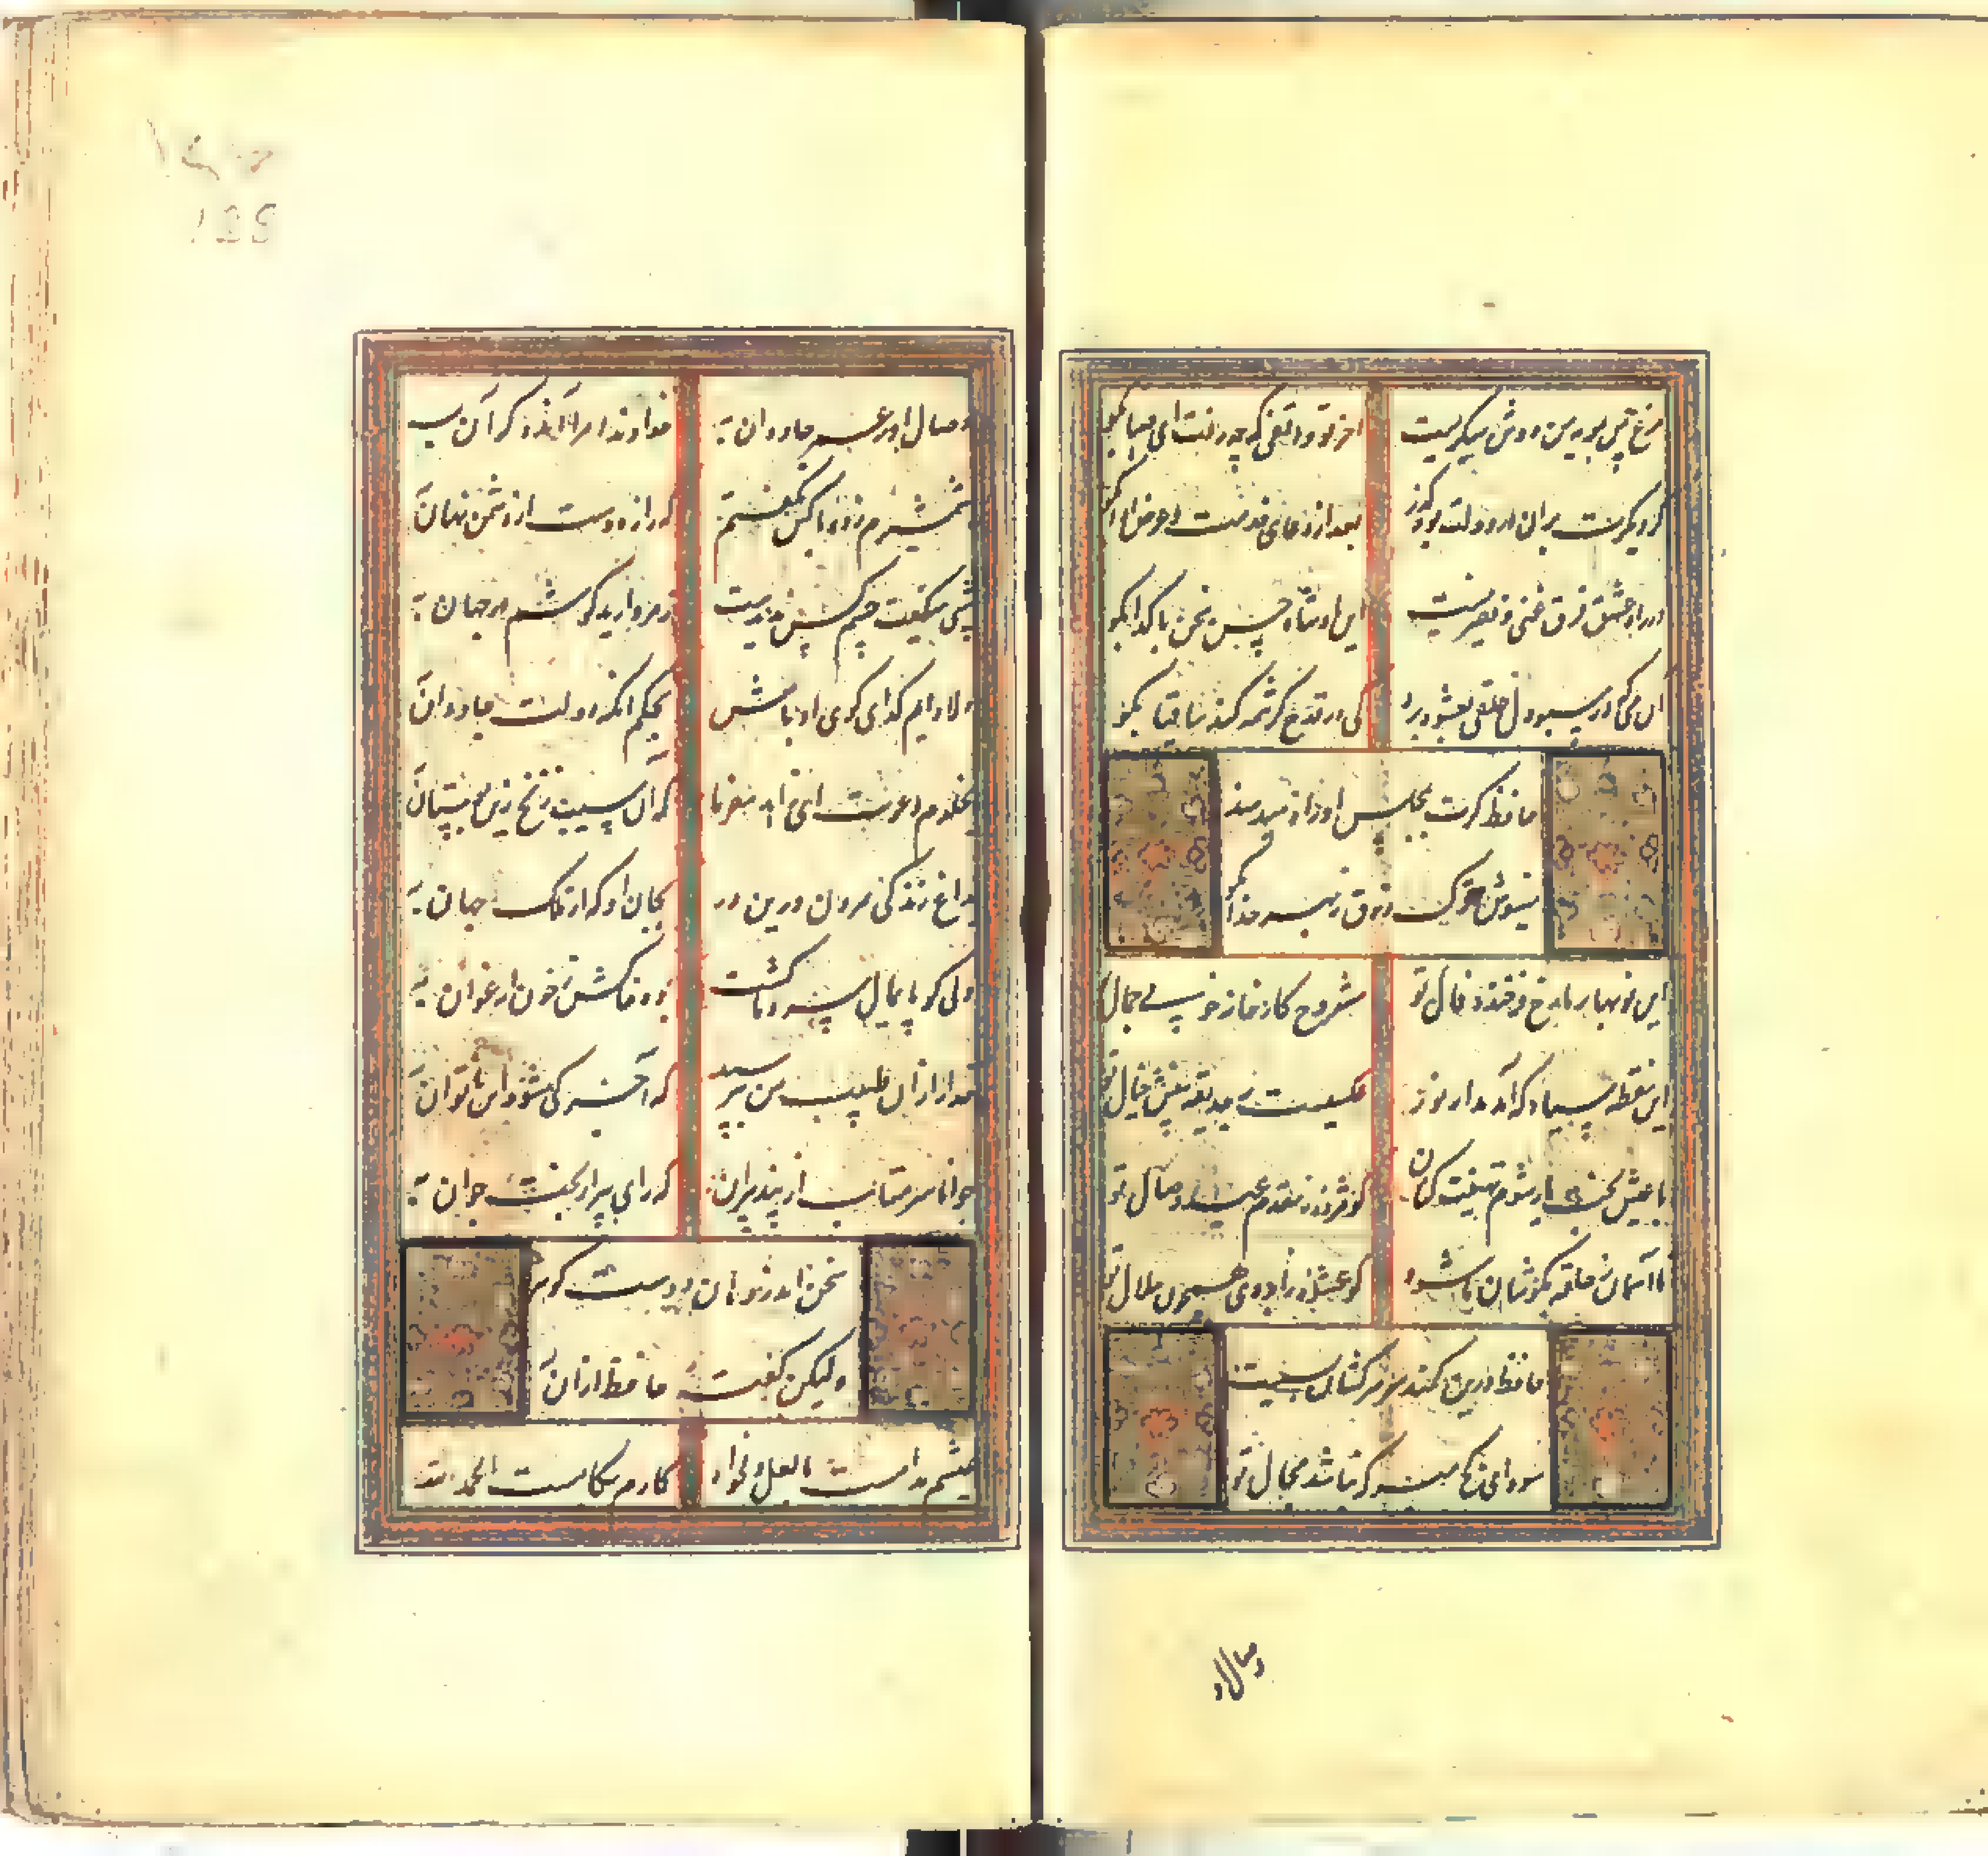 مرغ چمن بمویه من دوش میگریست    آخر تو واقفی که چه رفت ای صبا بگو
گر دیگرت بران در دولت بود گذر    بعد از دعای خدمت و عرض
در راه عشق فرق غنی و فقیر نیست    ای پادشاه حسن سخن با گدا بگو
آن می که در سبو دل خلقی بعشوه برد    کی در قدح کرشمه کند ساقیا بگو
حافظ گرت بمجلس او راه میدهند
می نوش و ترک زرق ز بهر خدا بگو
ای نوبهار ما رخ فرخنده فال تو    مشروح کارخانه خوبی جمال
این نقطه سیاه که آمد مدار نور    عکسیست در حدیقه بینش ز خال تو
تا پیش بخت باز شوم تهنیت کنان    کو مژده ز مقدم عید وصال تو
تا آسمان ز حلقه بگوشان ما شود    کو عشوه ز ابروی همچون هلال تو
حافظ درین کمند سر سرکشان بسیست
سودای کج مپز که نباشد مجال تو
وصال
وصال او ز عمر جاودان به    خداوندا مرا آن ده که آن به
بشمشیرم زد و با کس نگفتم    که راز دوست از دشمن نهان
شبی میگفت چشم کس ندیدست    ز مروارید گوشم در جهان به
دلا دایم گدای کوی او باش    بحکم آنکه دولت جاودان
بخلدم دعوت ای زاهد مفرما    که آن سیب زنخ زین بوستان
بداغ زندگی مردن درین در    بجان او که از ملک جهان به
گلی کو پایمال سرو ما گشت    بود خاکش ز خون ارغوان به
خدا را از آن طبیب من بپرسید    که آخر کی شود این ناتوان
جوانا سر متاب از پند پیران    که رای پیر از بخت جوان به
سخن اندر دهان دوست گوهر
ولیکن گفته حافظ از آن
عیشم مدامست با لعل دلخواه    کارم بکامست الحمدلله